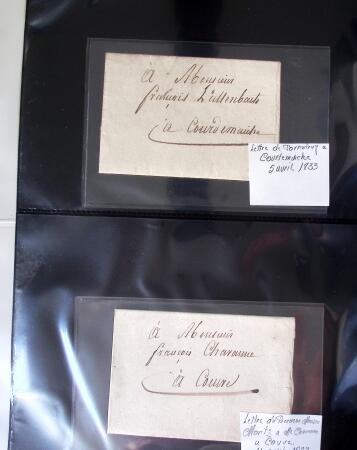 à Monsieur
françois Luttenbach
à Courdemaiche
Lettre de Porrentruy a
Courtemaiche
5 avril 1833
à Monsieur
françois Chavanne
à Coeuve
Lettre de
Moritz a
a Couve